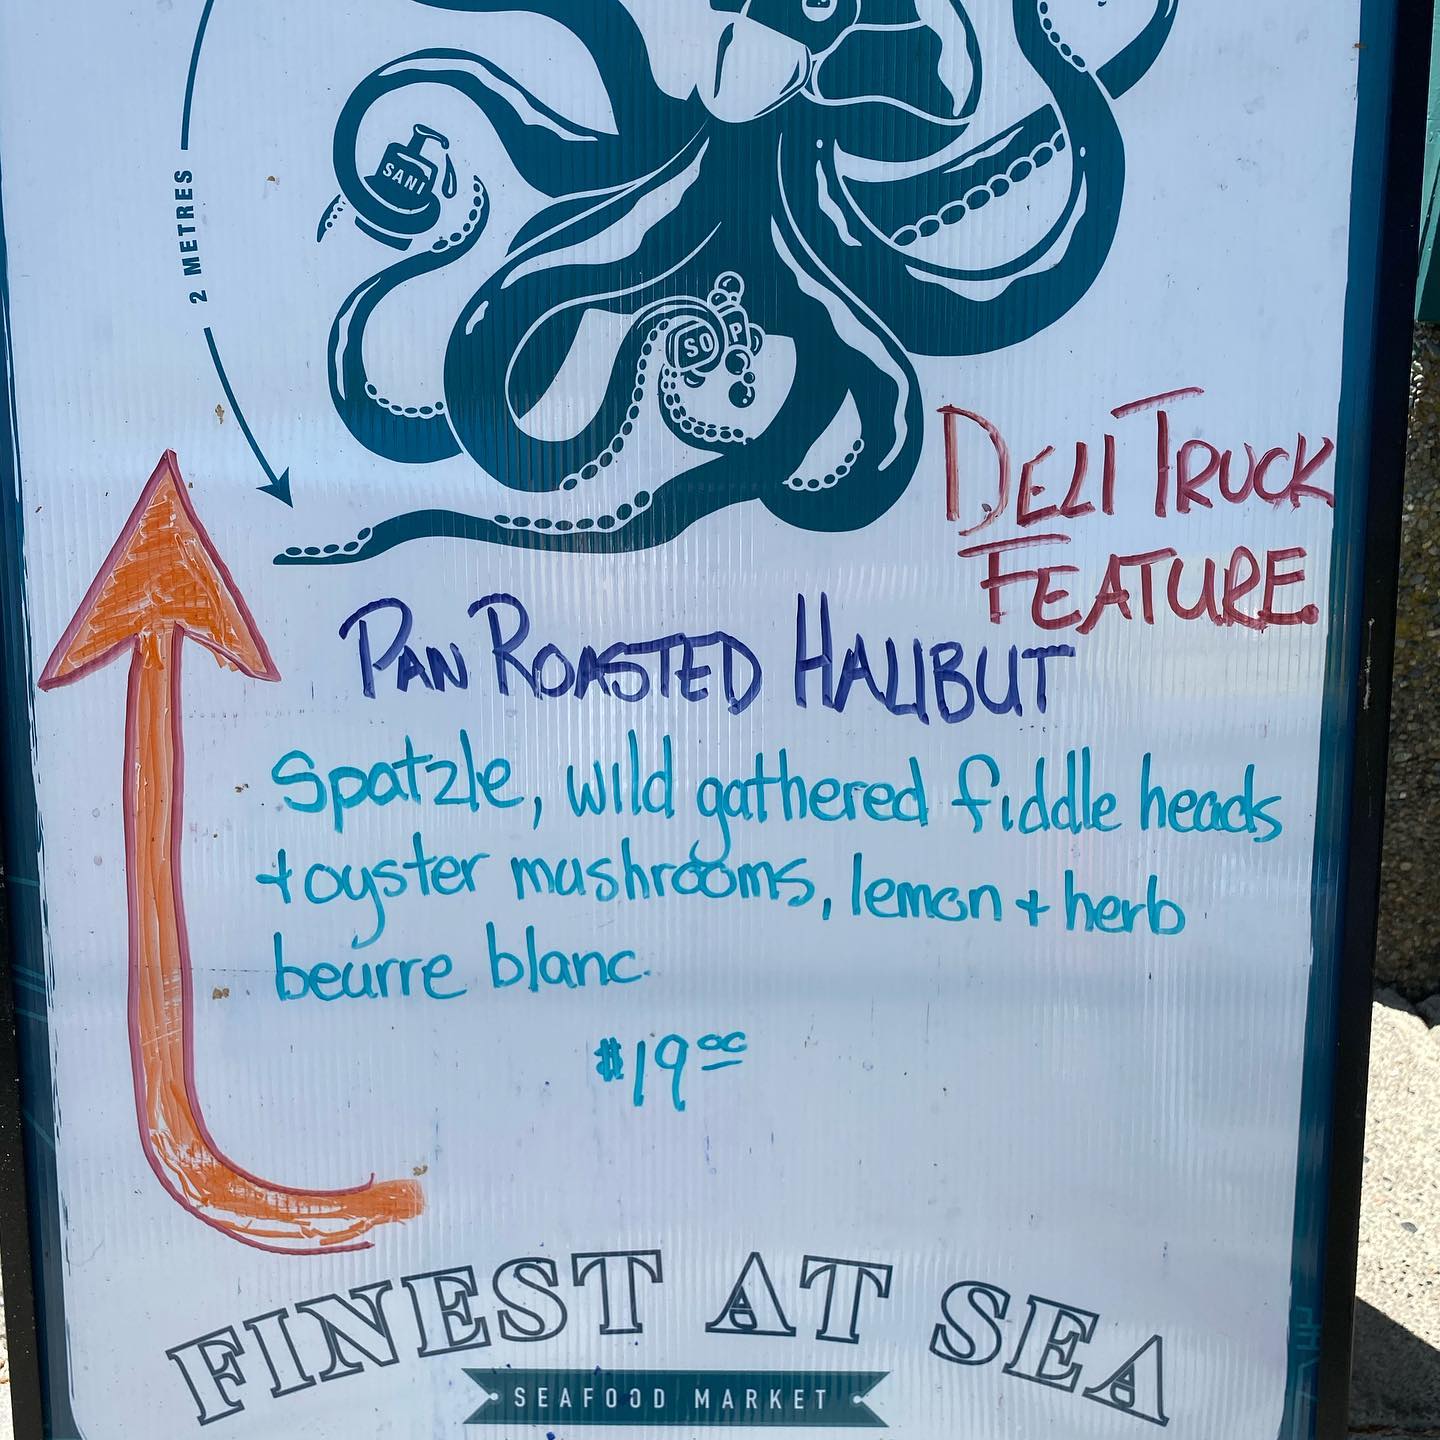 SANI
2 METRES
SO P
DELI TRUCK
FEATURE
PAN ROASTED HALIBUT
Spatzle, wild gathered fiddle heads
+ oyster mushrooms, lemon + herb
beurre blanc.
$19.00
FINEST AT SEA
SEAFOOD MARKET